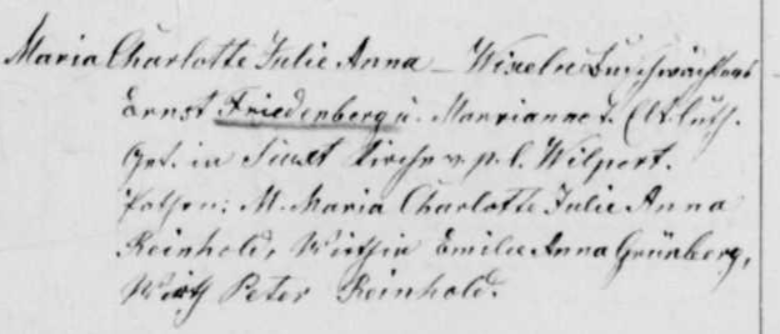 Maria Charlotte Julie Anna – Wixeln Buschwächters
Ernst Friedenberg u. Marrianne T. Elt. luth.
Get. in Siuxt Kirche v. p. l. Wilpert.
Pathen: M. Maria Charlotte Julie Anna
Reinhold, Wirthin Emilie Anna Grünberg,
Wirth Peter Reinhold.